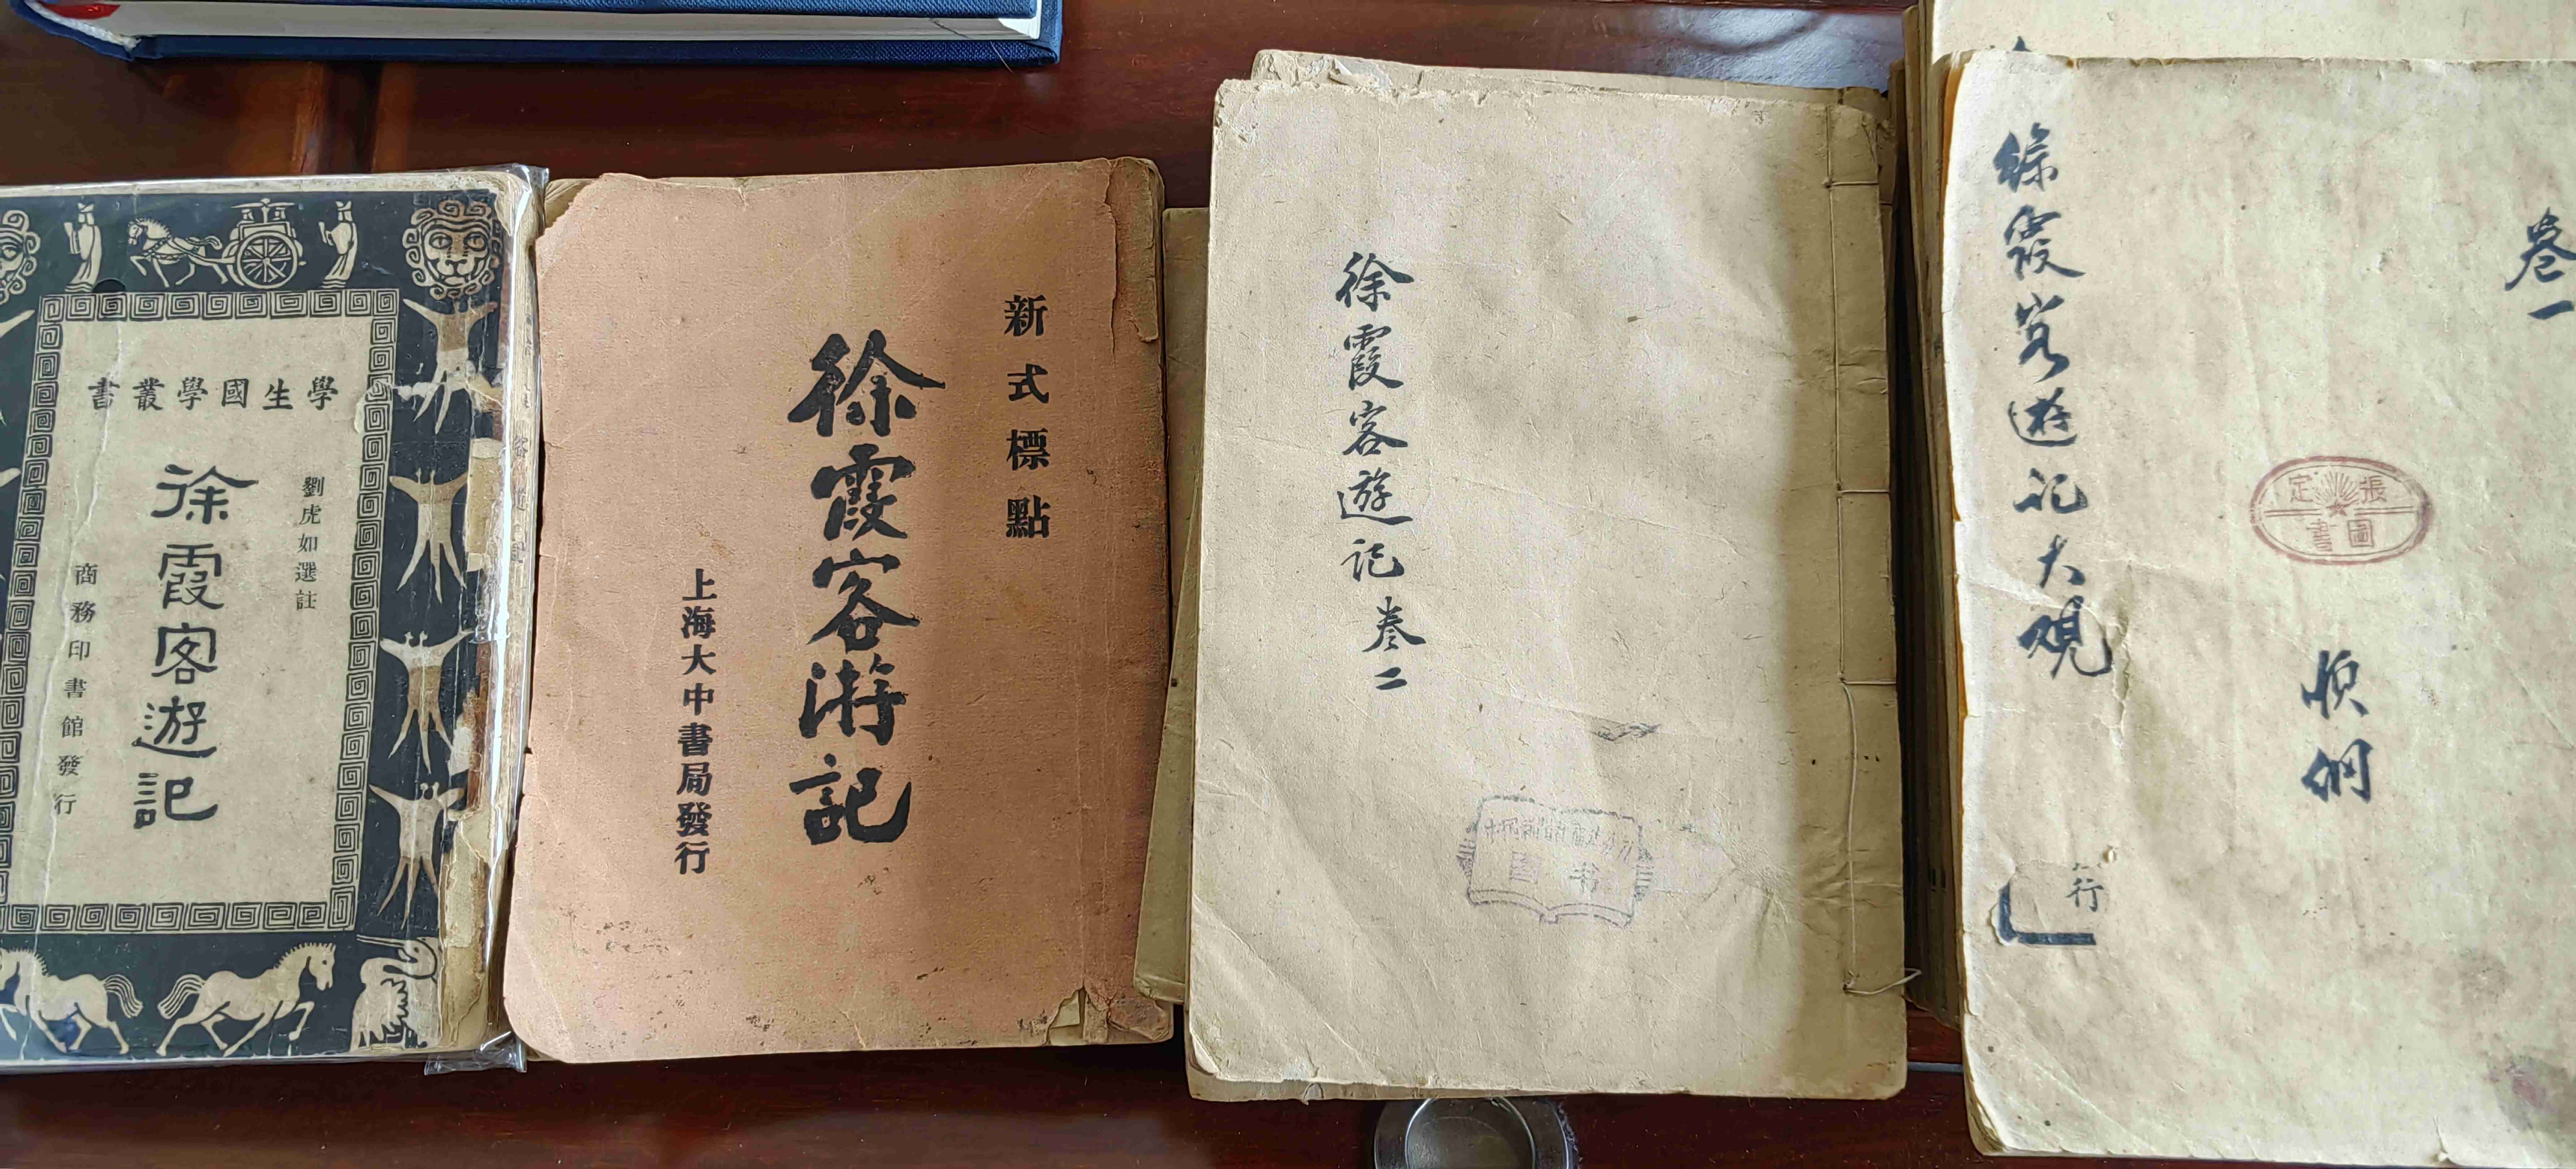 學生國學叢書
劉虎如選註
徐霞客遊記
商務印書館發行
新式標點
徐霞客游記
上海大中書局發行
徐霞客遊記卷二
图书
卷一
張定
圖書
徐霞客遊記大观
行